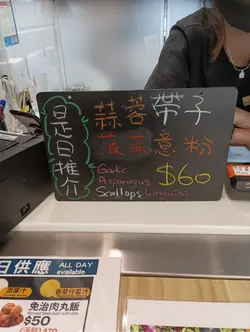 是日推介
蒜蓉帶子
菠菜意粉
Garlic
Asparagus
Scallops Linguini
$60
日供應
ALL DAY
available
免治肉丸飯
$50